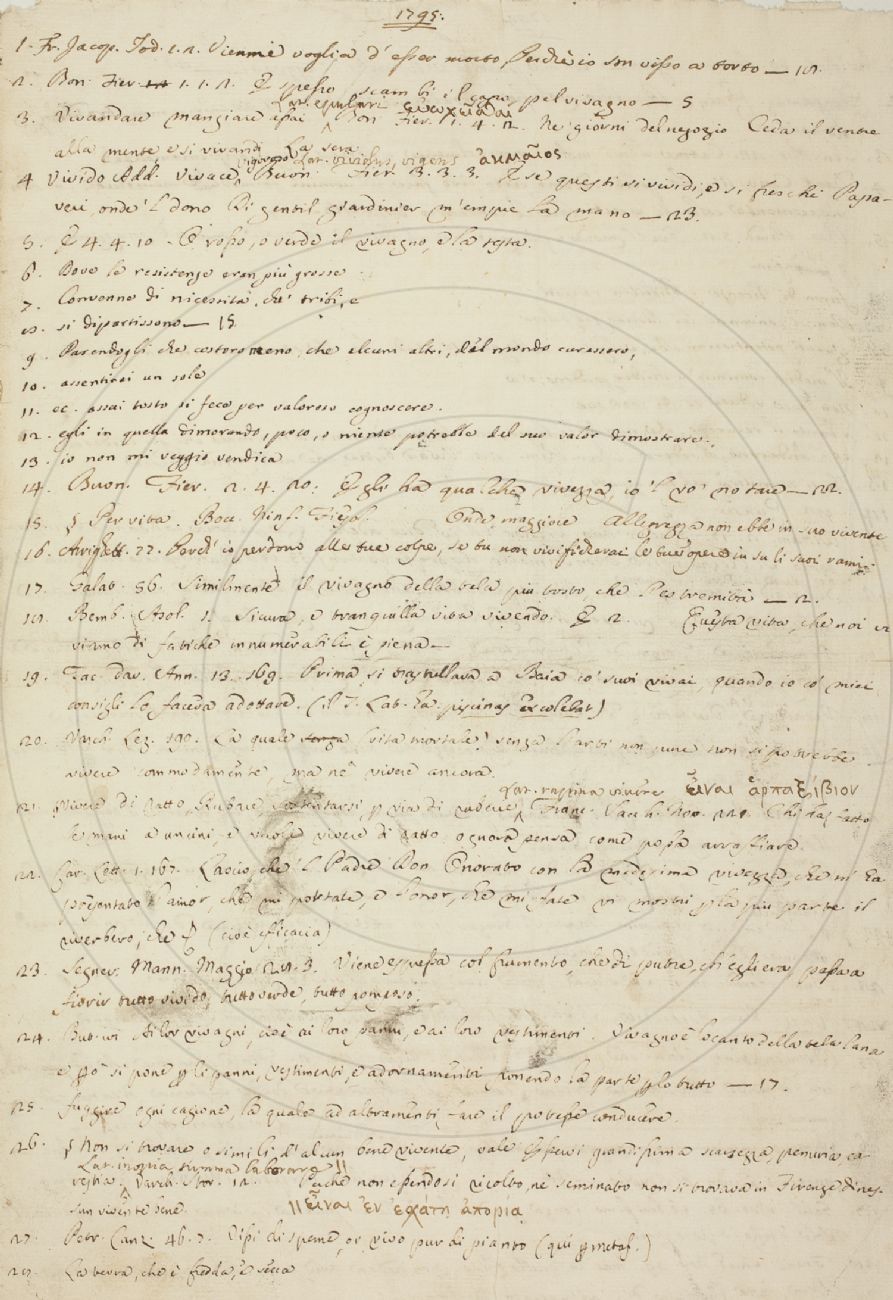 1795.
1. Fr. Jacop. Tod. 1. 2. Viemmi voglia d'esser morto, Perch'io son visso a torto — 18.
2. Bon. Fier. 1. 1. 2. E spesso scambi il capo, pel vivagno — 5
Lat. epulari εὐωχεῖσθαι
3. Vivandare mangiare Bon Fier. 1. 4. 2. Ne' giorni del negozio Ceda il ventre
alla mente, e si vivandi La sera
vigoroso Lat. vividus, vigens ἀκμαῖος
4 Vivido Add. Vivace, Buon. Fier. 3. 3. 3. E se questi sì vividi, e sì freschi Papa-
veri, onde 'l dono Di gentil giardinier m'empie la mano — 23.
5. E 4. 4. 10 - È rosso, o verde il vivagno, e la testa.
6. Dove le resistenze eran più grosse
7. Convenne di necessità, che' tribi, e
8. si dipartissono — 15
9. Parendogli che costoro meno, che alcuni altri, del mondo curassero,
10. assentirei un sole
11. ec. assai tosto si fece per valoroso cognoscere.
12. egli in quella dimorando, poco, o niente potrebbe del suo valor dimostrare.
13. io non mi veggio vendica
14. Buon. Fier. 2. 4. 20: Egli ha qualche vivezza, io 'l vo' notare — 22.
15. § Per vita. Bocc. Ninf. Fiesol. Onde maggiore Allegrezza non ebbe in suo vivente
16. Arrighett. 77. Perch' io perdono alle tue colpe, se tu non vivificherai le tue opere in su li suoi rami
17. Galat. 56. Similmente il vivagno della tela più tosto, che l'estremità — 2.
18. Bemb. Asol. 1. Sicura, e tranquilla vita vivendo. E 2. Questa vita, che noi vi
viamo di fatiche innumerabili è piena —
19. Tac. Dav. Ann. 13. 169. Prima si trastullava a Baia co' suoi vivai, quando io co' miei
consigli lo faceva adottare. (il T. Lat. ha piscinas excolebat)
20. Varch. Lez. 190. La quale (vita mortale) senza l'arti non pure non si potrebbe
vivere commodamente, ma nè vivere ancora.
Lat. rapina vivere εἶναι ἁρπαξίβιον
21. Vivere di ratto, Rubare, sostentarsi p via di rubare, Franc. Sacch. Nov. Chi ha fatto
le mani a uncini, e vuole vivere di ratto, ognora pensa come possa arraffiare.
22. Car. Lett. 1. 167. Lascio, che 'l Padre Don Onorato con la medesima vivezza, che m'ha
rappresentato l'amor, che mi portate, e l'onor, che mi fate vi mostri p la più parte il
riverbero, che (cioè efficacia)
23. Segner. Mann. Maggio 28. 3. Viene espressa col frumento, che di putre, ch'egli era, passa a
fiorir tutto vivido, tutto verde, tutto pomposo.
24. But. ivi A' lor vivagni, cioè ai loro panni, e ai loro vestimenti. Vivagno è lo canto della tela lana
e pò si pone p li panni, vestimenti, e adornamenti ponendo la parte p lo tutto — 17.
25. fuggire ogni cagione, la quale ad altramenti fare il potesse conducere.
26. § Non si trovare o simili d'alcun bene vivente, vale Esservi grandissima scarsezza, penuria ca-
Lat. inopia summa laborare ||
restia, Varch. Stor. 12. Perchè non essendosi ricolto, nè seminato non si trovava in Firenze di nes-
sun vivente bene. || εἶναι ἐν ἐσχάτῃ ἀπορίᾳ
27. Petr. Canz. 46. 7. Vissi di speme, or vivo pur di pianto (quì p metaf.)
28. La terra, che è fredda, e secca